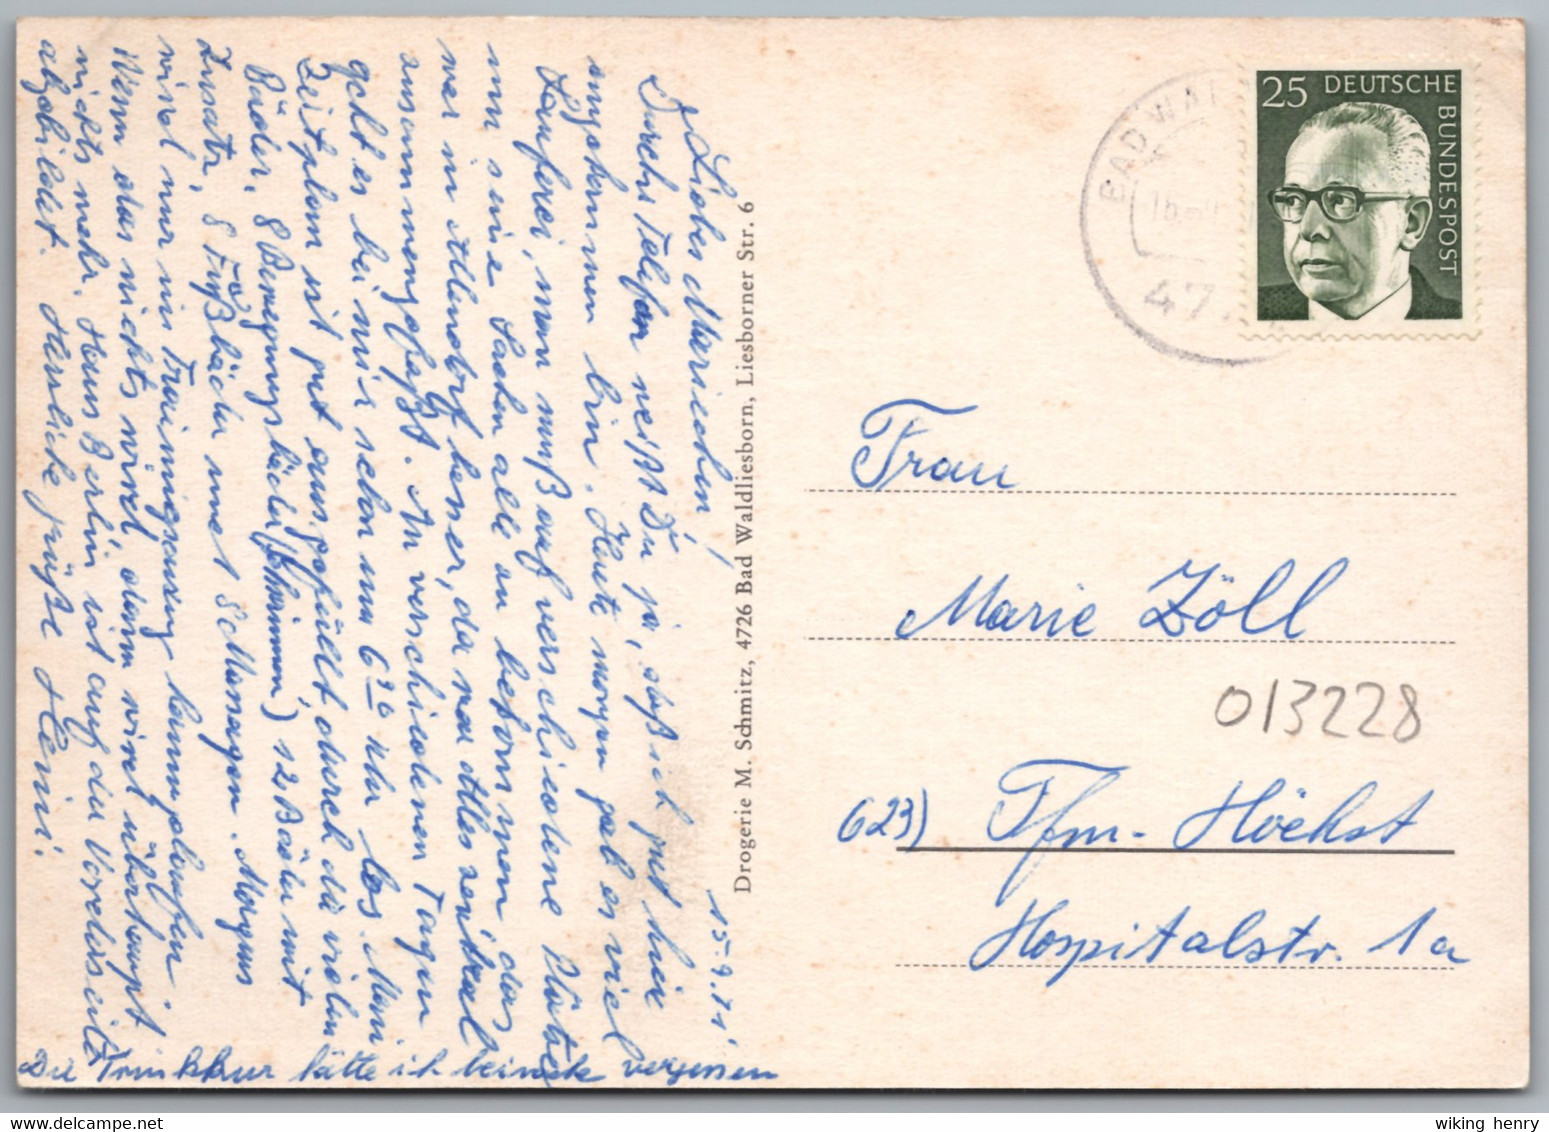 15.9.71
Liebes Mariechen!
Durchs Telefon weißt Du ja, daß ich gut hier
angekommen bin. Heute morgen gab es viel
Lauferei, man muß auf verschiedene Plätze
um seine Sachen alle zu bekommen das
war in Allendorf besser, da war Alles zentral
zusammengefaßt. An verschiedenen Tagen
geht es bei mir schon um 6³⁰ Uhr los. Mein
Zeitplan ist gut ausgefüllt durch die vielen
Bäder, 8 Bewegungsbäder (Schwimmen) 12 Bäder mit
Zusatz, 8 Fußbäder und 8 Massagen. Morgens
wird nur im Trainingsanzug herumgelaufen.
Wenn das nichts wird, dann wird überhaupt
nichts mehr. Haus Berlin ist auf der Vorderseite
abgebildet. Herzliche Grüße Heini.
Die Trinkkur hätte ich beinah vergessen
Drogerie M. Schmitz, 4726 Bad Waldliesborn, Liesborner Str. 6
BAD WAL
47
25 DEUTSCHE BUNDESPOST
Frau
Marie Zöll
013228
623) Ffm-Höchst
Hospitalstr. 1a
wiking henry